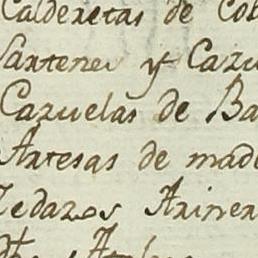 Calderetas de Cob
Sartenes y Cazu
Cazuelas de Ba
Artesas de made
Zedazos Ariner